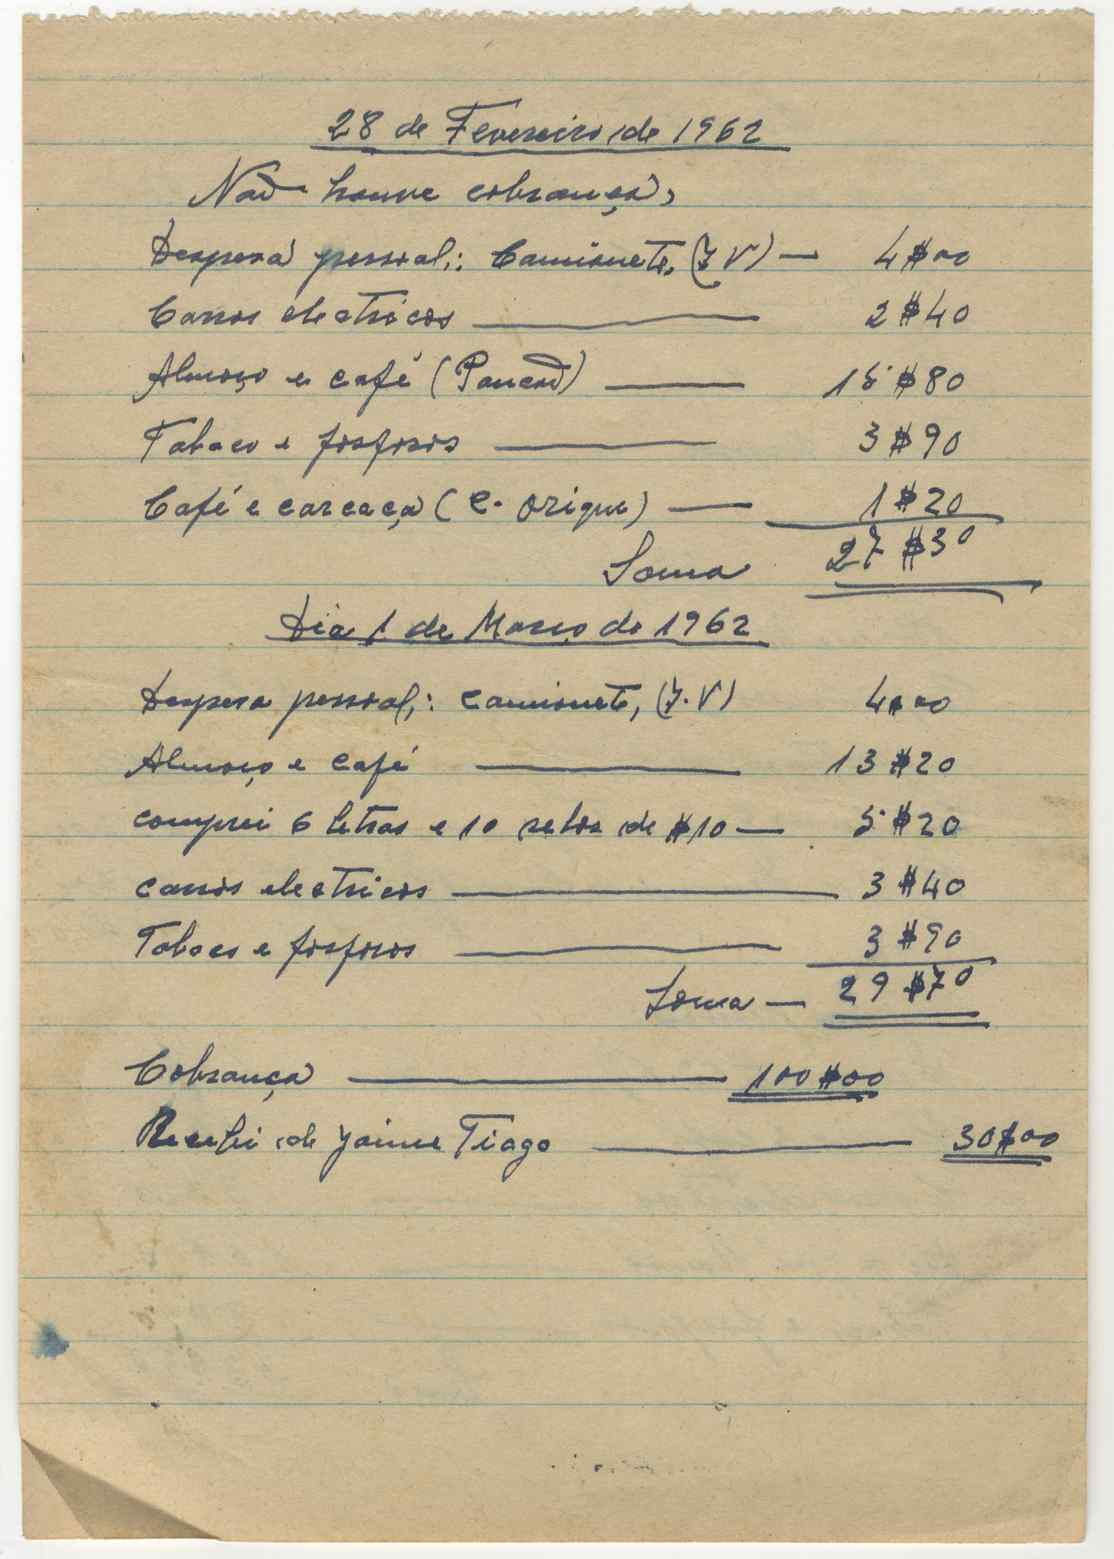 28 de Fevereiro de 1962
Não houve cobrança,
Despesa pessoal,: Camionete, (I V) — 4$00
Carros electricos — 2$40
Almoço e café (Pancão) — 15$80
Tabaco e fosforos — 3$90
Café e carcaça (C. Orique) — 1$20
Soma 27$30
Dia 1 de Março de 1962
Despesa pessoal,: Camionete, (I. V) 4$00
Almoço e café — 13$20
comprei 6 letras e 10 selos de $10 — 5$20
carros electricos — 3$40
Tabaco e fosforos — 3$90
Soma — 29$70
Cobrança — 100$00
Recebi de Jaime Tiago — 30$00